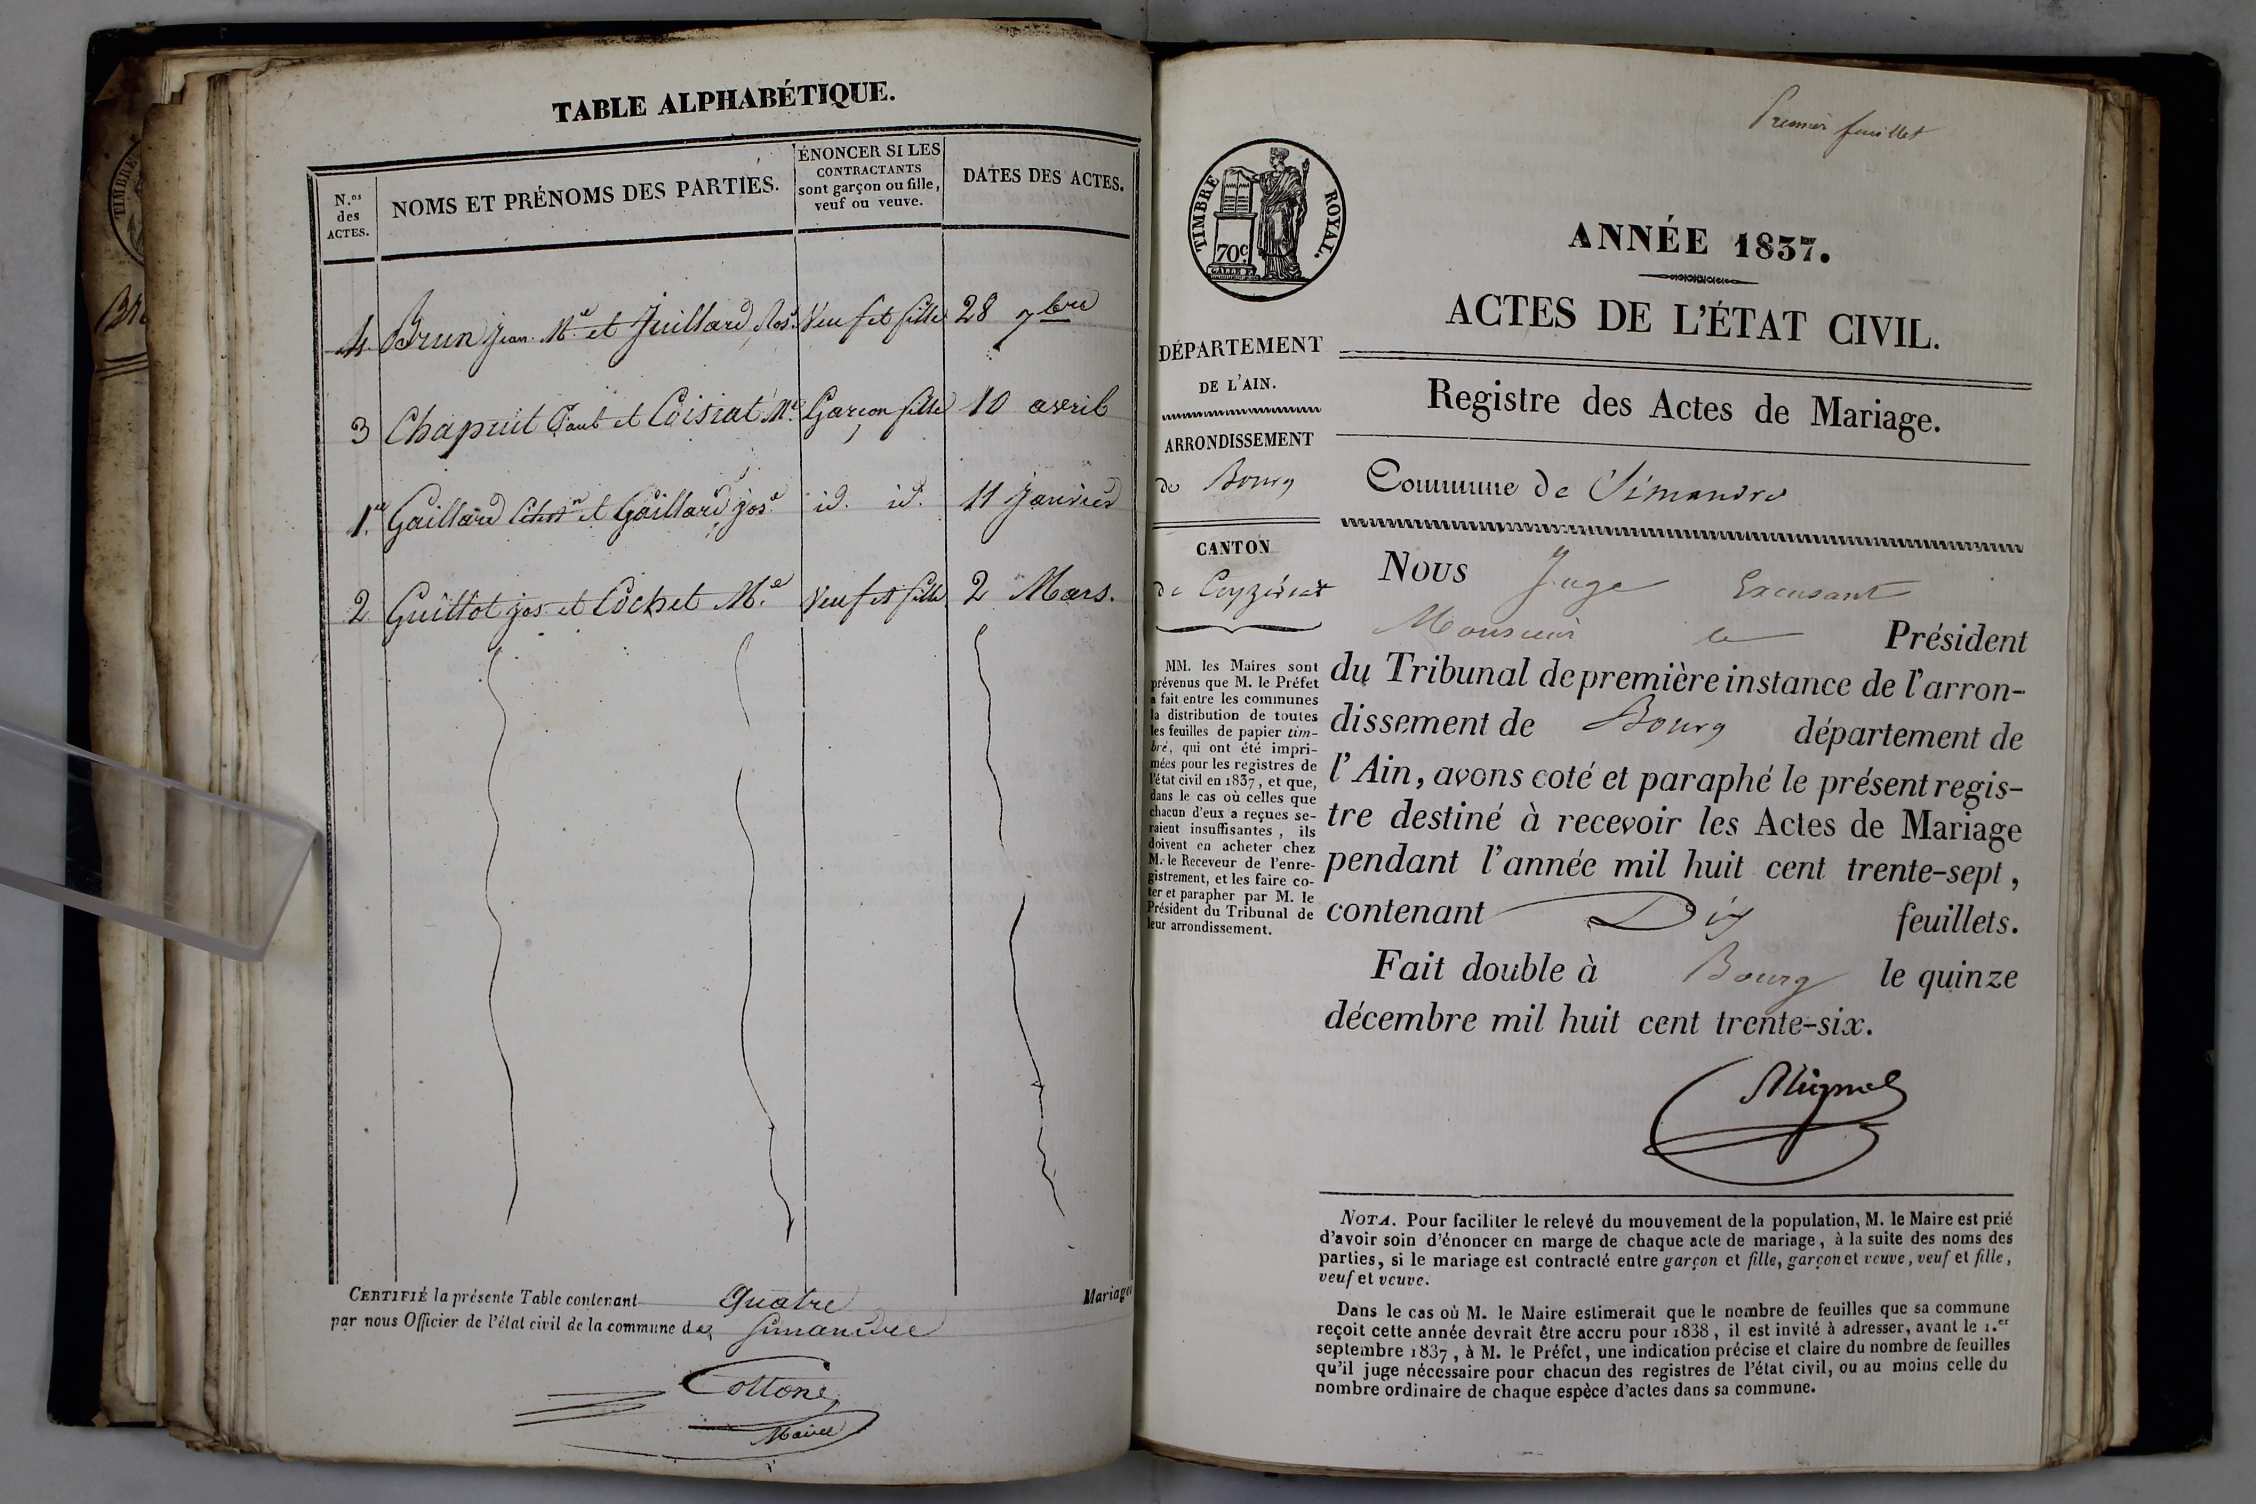 TABLE ALPHABÉTIQUE.
N.os des ACTES.
NOMS ET PRÉNOMS DES PARTIES.
ÉNONCER SI LES
CONTRACTANTS
sont garçon ou fille,
veuf ou veuve.
DATES DES ACTES.
4 Brun Jean M.e et Juillard Jos. Veuf et fille 28 7bre
3 Chapuit Paul et Coisiat M.e Garçon fille 10 avril
1.er Gaillard et Gaillard jos.e id. id. 11 Janvier
2 Guillot jos et Cochet M.e Veuf et fille 2 Mars.
CERTIFIÉ la présente Table contenant quatre Mariages
par nous Officier de l'état civil de la commune de Simandre
Cottone
Maire
TIMBRE
Premier feuillet
TIMBRE ROYAL.
70c
ANNÉE 1837.
ACTES DE L'ÉTAT CIVIL.
DÉPARTEMENT
DE L'AIN.
ARRONDISSEMENT
de Bourg
CANTON
de Ceyzériat
MM. les Maires sont
prévenus que M. le Préfet
a fait entre les communes
la distribution de toutes
les feuilles de papier tim-
bré, qui ont été impri-
mées pour les registres de
l'état civil en 1837, et que,
dans le cas où celles que
chacun d'eux a reçues se-
raient insuffisantes, ils
doivent en acheter chez
M. le Receveur de l'enre-
gistrement, et les faire co-
ter et parapher par M. le
Président du Tribunal de
leur arrondissement.
Registre des Actes de Mariage.
Commune de Simandre
Nous Juge Excusant
Monsieur le Président
du Tribunal de première instance de l'arron-
dissement de Bourg département de
l'Ain, avons coté et paraphé le présent regis-
tre destiné à recevoir les Actes de Mariage
pendant l'année mil huit cent trente-sept,
contenant Dix feuillets.
Fait double à Bourg le quinze
décembre mil huit cent trente-six.
NOTA. Pour faciliter le relevé du mouvement de la population, M. le Maire est prié
d'avoir soin d'énoncer en marge de chaque acte de mariage, à la suite des noms des
parties, si le mariage est contracté entre garçon et fille, garçon et veuve, veuf et fille,
veuf et veuve.
Dans le cas où M. le Maire estimerait que le nombre de feuilles que sa commune
reçoit cette année devrait être accru pour 1838, il est invité à adresser, avant le 1.er
septembre 1837, à M. le Préfet, une indication précise et claire du nombre de feuilles
qu'il juge nécessaire pour chacun des registres de l'état civil, ou au moins celle du
nombre ordinaire de chaque espèce d'actes dans sa commune.